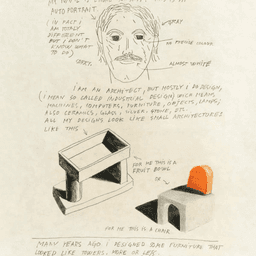 AUTO PORTRAIT
( IN FACT I
AM TOTALY
DIFFERENT
BUT I DON'T
KNOW WHAT
TO DO )
GRAY
ALMOST WHITE
I AM AN ARCHITECT, BUT MOSTLY I DO DESIGN,
( I MEAN SO CALLED INDUSTRIAL DESIGN ) WICH MEANS
MACHINES, COMPUTERS, FURNITURE, OBJECTS, LAMPS,
ALSO CERAMICS, GLASS, SILVER, STONE, ETC.
ALL MY DESIGNS LOOK LIKE SMALL ARCHITECTURES
LIKE THIS
FOR ME THIS IS A
FRUIT BOWL
OR
FOR ME THIS IS A LAMP
MANY YEARS AGO I DESIGNED SOME FURNITURE THAT
LOOKED LIKE TOWERS. MORE OR LESS.